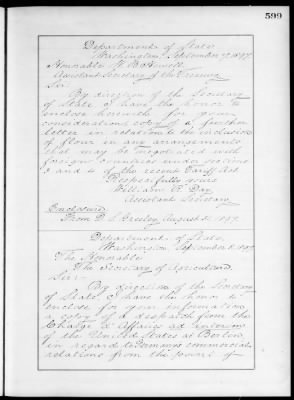 599
Department of State,
Washington, September 7, 1897.
Honorable W. B. Howell,
Assistant Secretary of the Treasury.
Sir:
By direction of the Secretary
of State I have the honor to
enclose herewith for your
consideration copy of a further
letter in relation to the inclusion
of flour in any arrangements
that may be negotiated with
foreign countries under sections
3 and 4 of the recent Tariff Act.
Respectfully yours
William R. Day
Assistant Secretary.
Enclosure:
From D. S. August 31, 1897.
Department of State,
Washington, September 8, 1897.
The Honorable
The Secretary of Agriculture.
Sir:
By direction of the Secretary
of State, I have the honor to
enclose for your information
a copy of a despatch from the
Chargé d'Affaires ad interim
of the United States at Berlin
in regard to Germany's commercial
relations from the point of